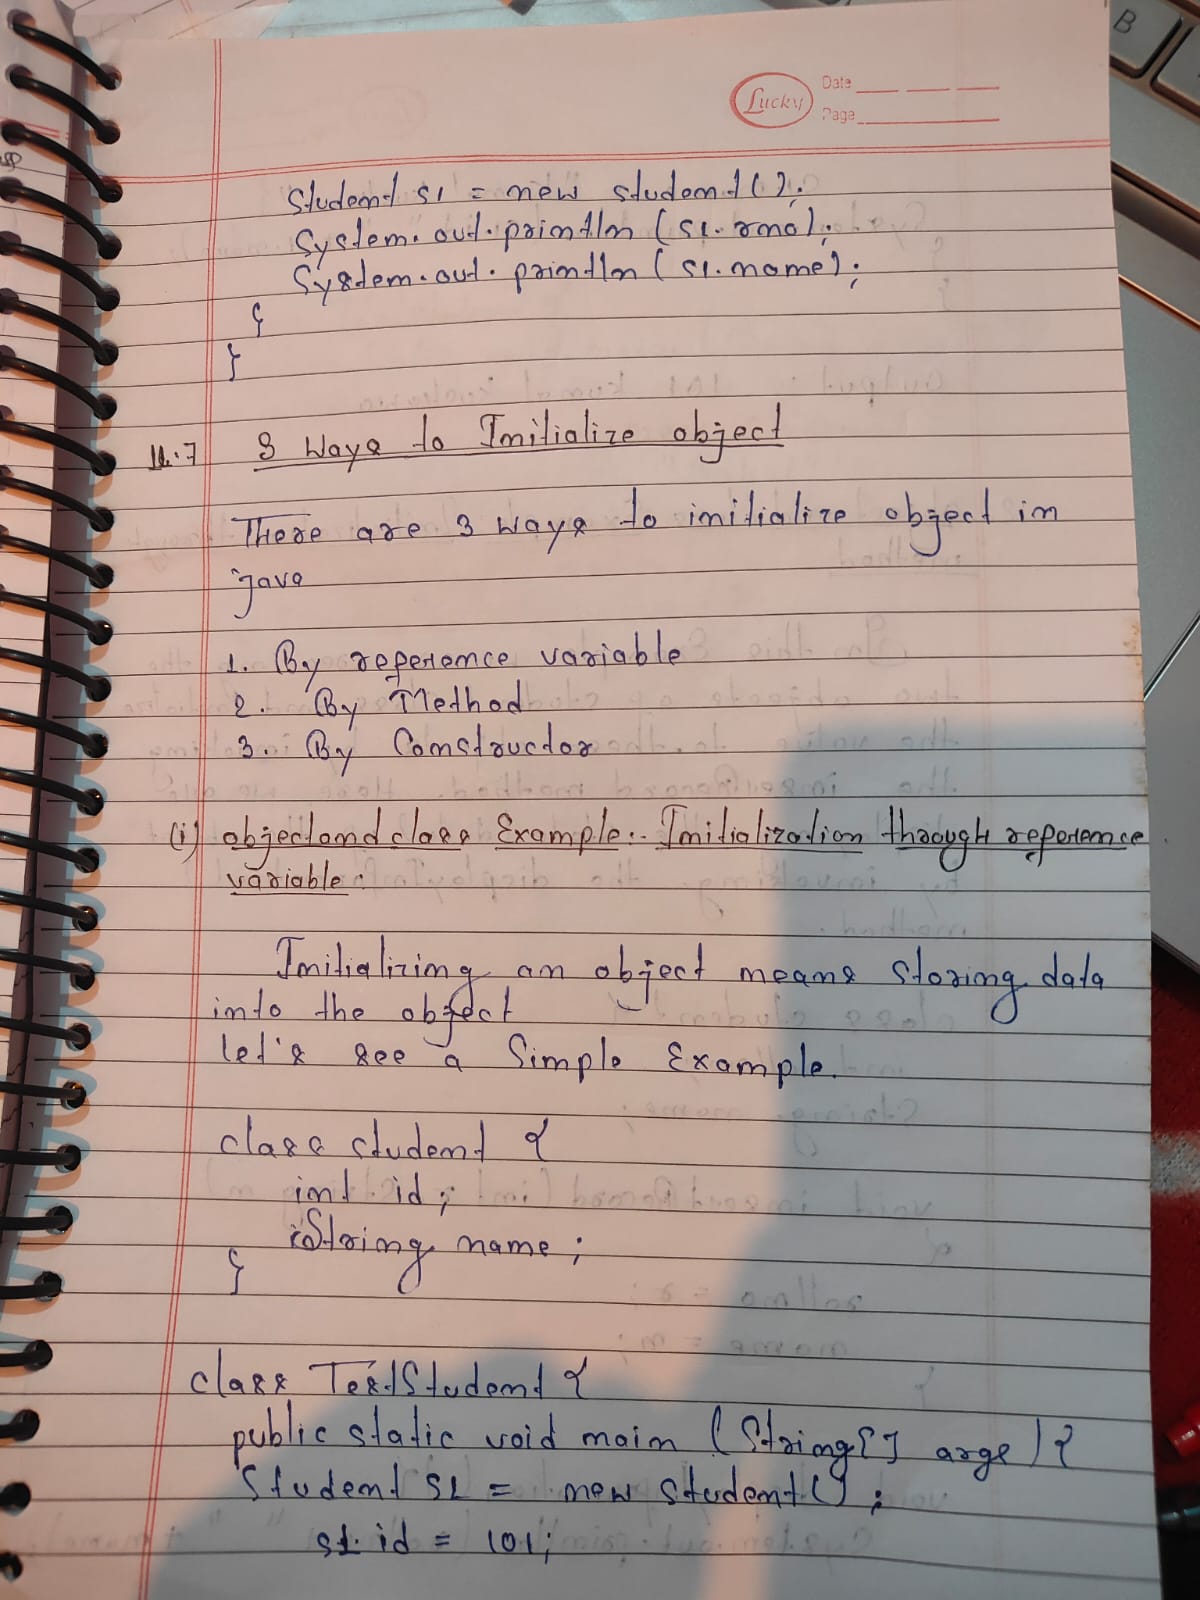 Lucky
Date
Page
Student s1 = new student();
System.out.println(s1.rno);
System.out.println(s1.name);
}
}
11.7 3 Ways to Initialize object
There are 3 ways to initialize object in
java
1. By reference variable
2. By Method
3. By Constructor
(i) object and class Example:- Initialization through reference
variable:
Initializing an object means storing data
into the object
let's see a Simple Example.
class student {
int id;
String name;
}
class TestStudent {
public static void main (String[] args) {
Student s1 = new student();
s1.id = 101;
B